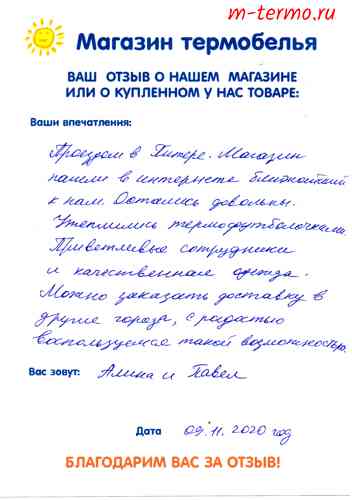 m-termo.ru
Магазин термобелья
ВАШ ОТЗЫВ О НАШЕМ МАГАЗИНЕ
ИЛИ О КУПЛЕННОМ У НАС ТОВАРЕ:
Ваши впечатления:
Проездом в Питере. Магазин
нашли в интернете ближайший
к нам. Остались довольны.
Утеплились термофутболочками.
Приветливые сотрудники
и качественная одежда.
Можно заказать доставку в
другие города, с радостью
воспользуемся такой возможностью.
Вас зовут: Алина и Павел
Дата 09.11.2020 год
БЛАГОДАРИМ ВАС ЗА ОТЗЫВ!